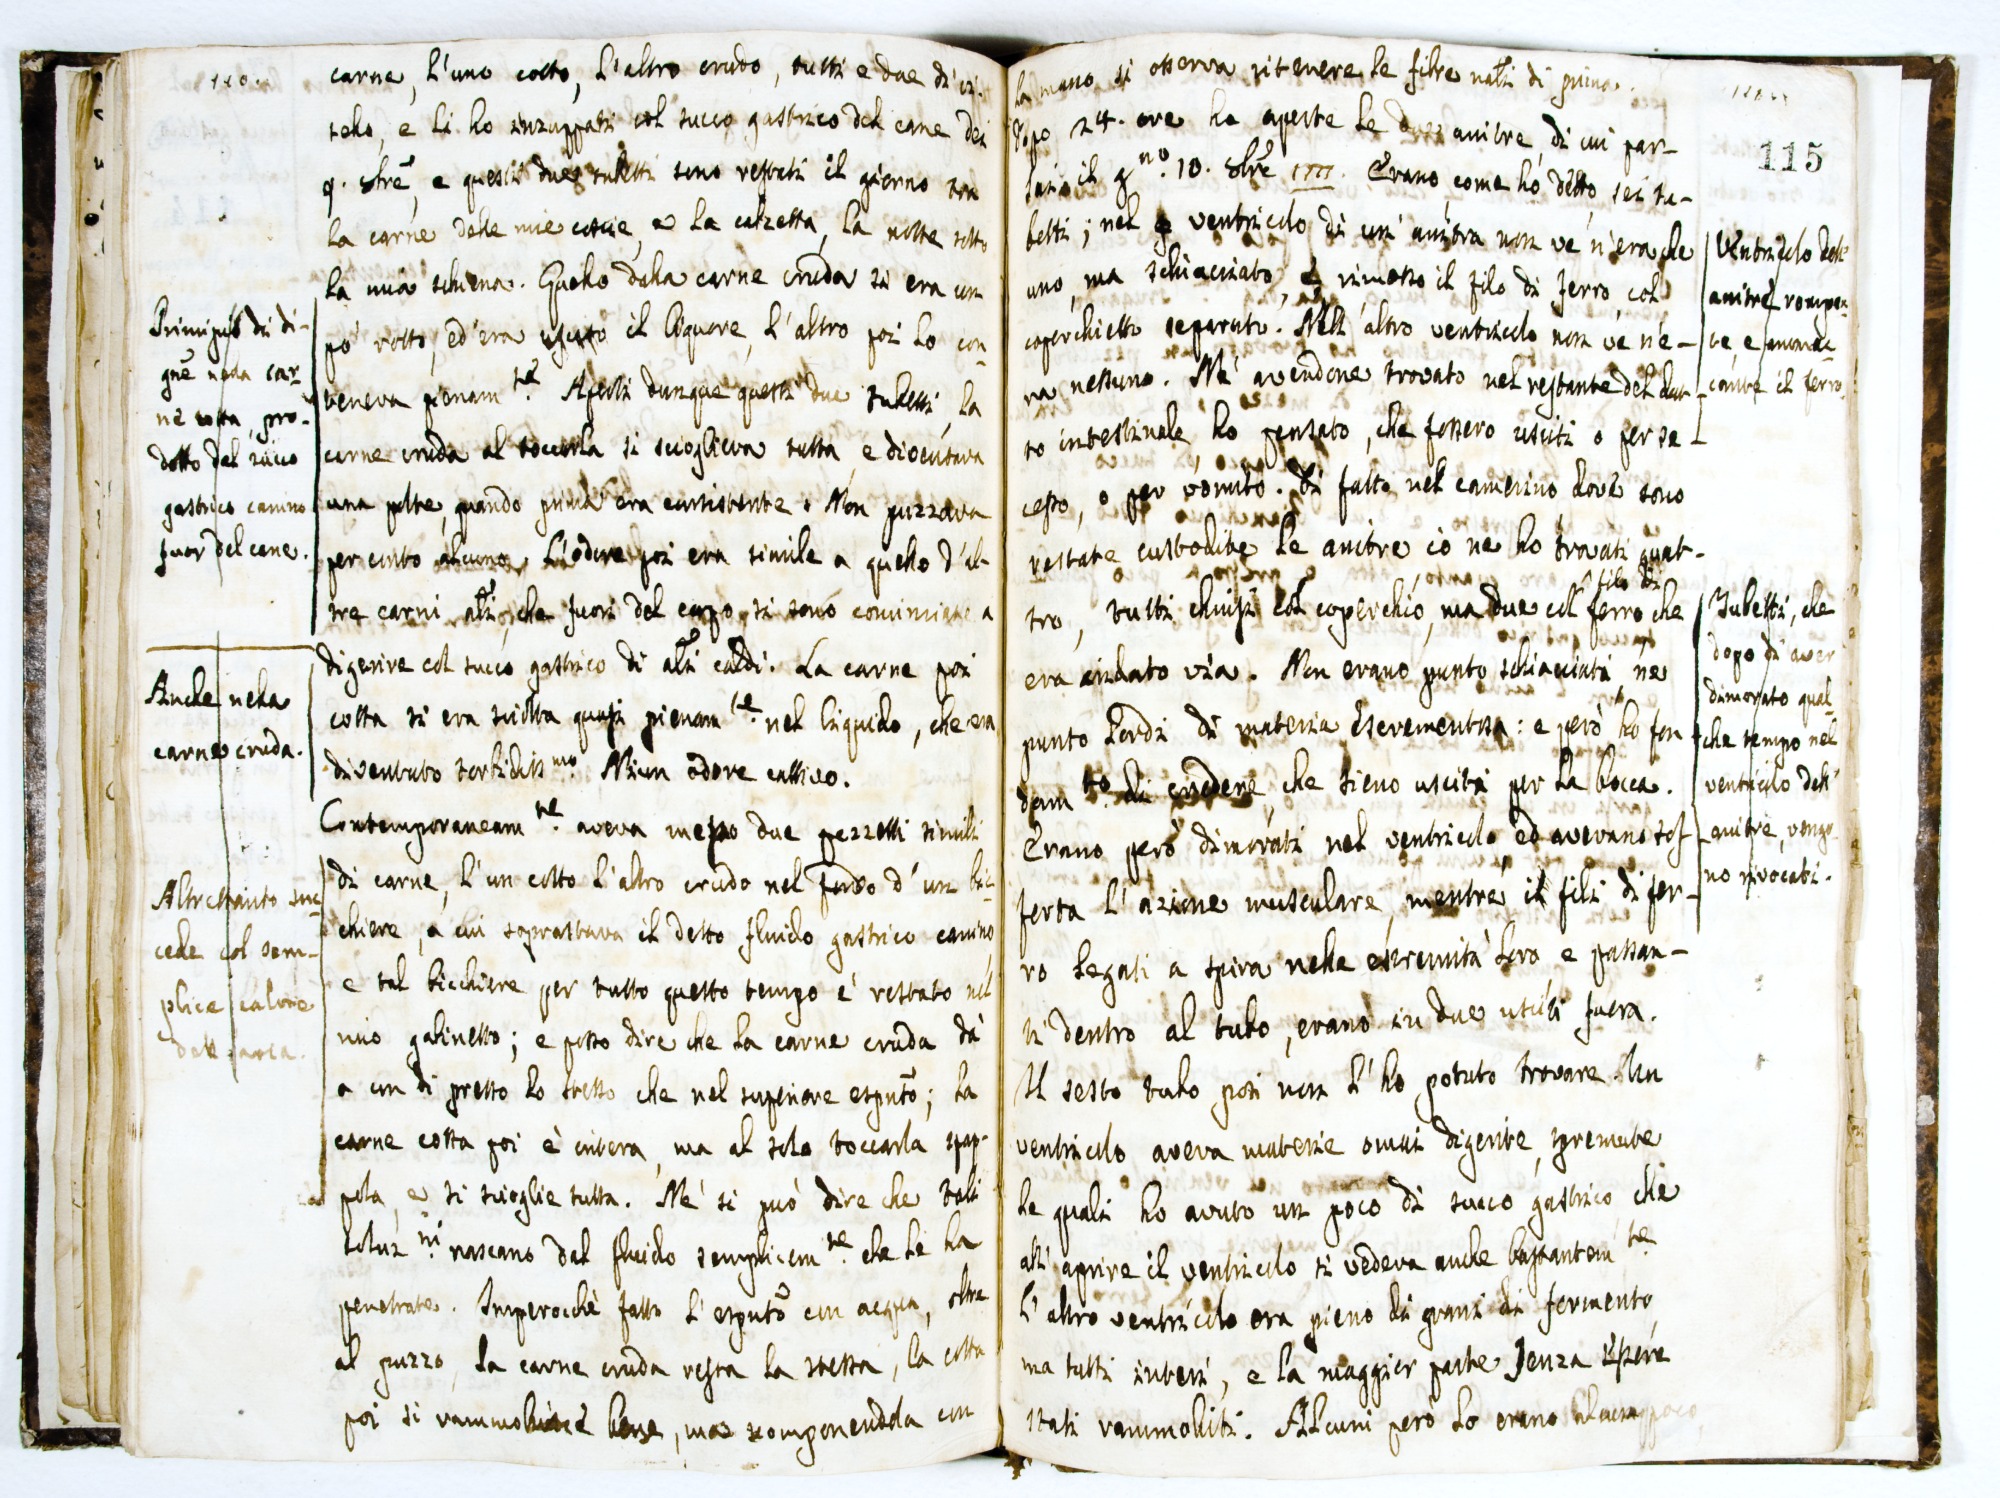 110.
carne, l'uno cotto, l'altro crudo, tutti e due di vi-
tello, e li ho inzuppati col succo gastrico del cane dei
9. 8bre, e questi due tubetti sono restati il giorno tra
la carne delle mie coscie, e la calzetta, la notte sotto
la mia schiena. Quello dalla carne cruda si era un
po' rotto, ed era uscito il liquore, l'altro poi lo con-
teneva pienam.te Aperti dunque questi due tubetti, la
carne cruda al toccarla si scioglieva tutta, e diventava
una polte, quando prima era consistente. Non puzzava
per conto alcuno. L'odore poi era simile a quello d'al-
tre carni, che fuori del corpo si sono cominciate a
digerire col succo gastrico di caldi. La carne poi
cotta si era sciolta quasi pienam.te nel liquido, che era
diventato torbidiss.mo. Niun odore cattivo.
Contemporaneam.te aveva messo due pezzetti simili
di carne, l'un cotto l'altro crudo nel fondo d'un bic-
chiere, a cui soprastava il detto fluido gastrico canino,
e tal bicchiere per tutto questo tempo é restato nel
mio gabinetto; e posso dire che la carne cruda dà
a un di presso lo stesso che nel superiore esputo; la
carne cotta poi è intera, ma al solo toccarla spap-
pola, e si scioglie tutta. Né si può dire che tali
soluz.ni nascano dal fluido semplicem.te che le ha
penetrate. Imperocchè fatto l'esputo con acqua, oltre
al puzzo, la carne cruda resta la stessa, la cotta
poi si rammollisce bene, ma componendola con
Principio di di-
gne nella car-
ne cotta, pro-
dotto del succo
gastrico canino
fuor del cane.
Anche nella
carne cruda.
Altrettanto suc-
cede col sem-
plice calore
dell'aria.
115
la mano si osserva ritenere le fibre di prima.
Dopo 24. ore ho aperte le due anitre, di cui par-
lasi il g.no 10. 8bre 1777. Erano, come ho detto sei tu-
betti; nel ventricolo di un'anitra non ve n'era che
uno, ma schiacciato, e rimosso il filo di ferro col
coperchietto separato. Nell'altro ventricolo non ve n'e-
ra nessuno. Né avendone trovato nel restante del dut-
to intestinale, ho pensato, che fossero usciti o per se-
cesso, o per vomito. Di fatto nel camerino, dove sono
restate custodite le anitre io ne ho trovati quat-
tro, tutti chiusi col coperchio, ma due col filo di ferro che
era andato via. Non erano punto schiacciati, ne
punto lordi di materia escrementosa: e però ho fon-
dam.to di credere, che sieno usciti per la bocca.
Erano però dimorati nel ventricolo, ed avevano sof-
ferta l'azione musculare, mentre i fili di fer-
ro legati a spira nelle estremità loro e passan-
ti dentro al tubo, erano in due usciti fuora.
Il sesto tubo poi non l'ho potuto trovare. Un
ventricolo aveva materie omai digerite, spremute
le quali ho avuto un poco di succo gastrico che
all'aprire il ventricolo si vedeva anche bastantem.te
L'altro ventricolo era pieno di grani di formento,
ma tutti interi, e la maggior parte senza essere
stati rammolliti. Alcuni però lo erano alcun poco,
Ventricolo dell'
anitre rompen-
te, e
cante il ferro.
Tubetti, che
dopo di aver
dimorato qual-
che tempo nel
ventricolo dell'
anitre, vengo-
no rivocati.